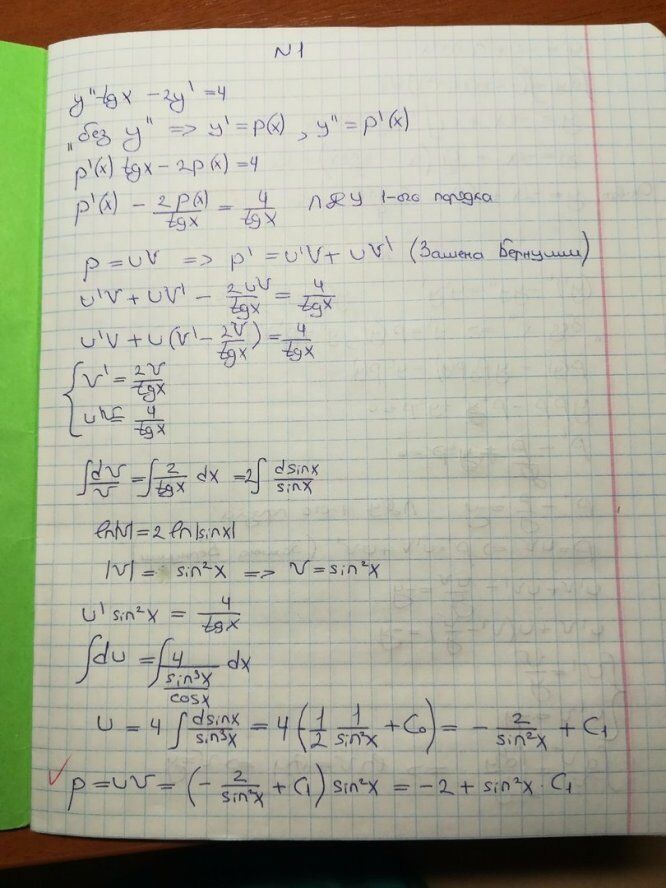 N1
y'' tgx - 2y' = 4
"без y" => y' = p(x), y'' = p'(x)
p'(x) tgx - 2p(x) = 4
p'(x) - 2p(x)/tgx = 4/tgx ЛДУ 1-ого порядка
p = uv => p' = u'v + uv' (Замена Бернулли)
u'v + uv' - 2uv/tgx = 4/tgx
u'v + u(v' - 2v/tgx) = 4/tgx
{ v' = 2v/tgx
u'v = 4/tgx
∫dv/v = ∫2/tgx dx = 2∫dsinx/sinx
ln|v| = 2 ln|sinx|
|v| = sin²x => v = sin²x
u' sin²x = 4/tgx
∫du = ∫4/(sin³x/cosx) dx
u = 4∫dsinx/sin³x = 4(-1/2 1/sin²x + C₀) = -2/sin²x + C₁
p = uv = (-2/sin²x + C₁) sin²x = -2 + sin²x · C₁